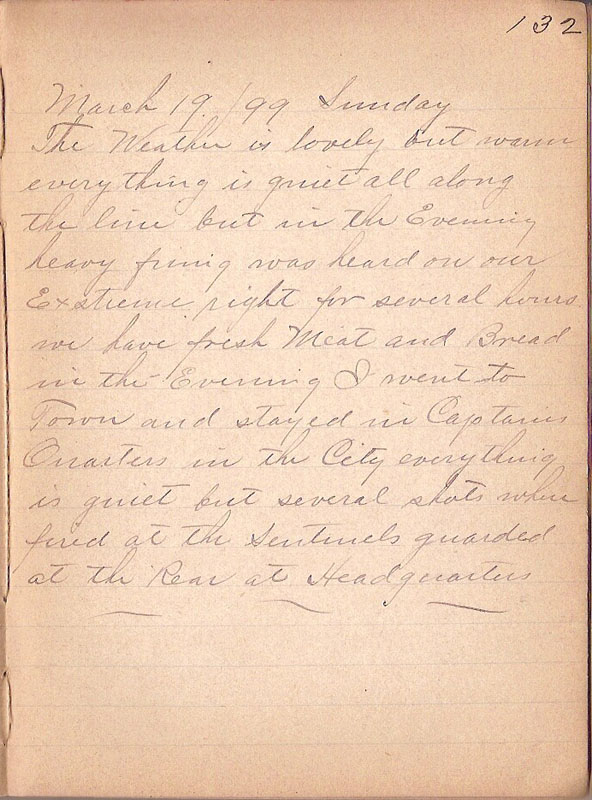 132
March 19 /99 Sunday
The Weather is lovely but warm
everything is quiet all along
the line but in the Evening
heavy firing was heard on our
Exstreme right for several hours.
we have fresh Meat and Bread
in the Evening I went to
Town and stayed in Captains
Quarters in the City everything
is quiet but several shots wher
fired at the Sentinels guarded
at the Rear at Headquarters